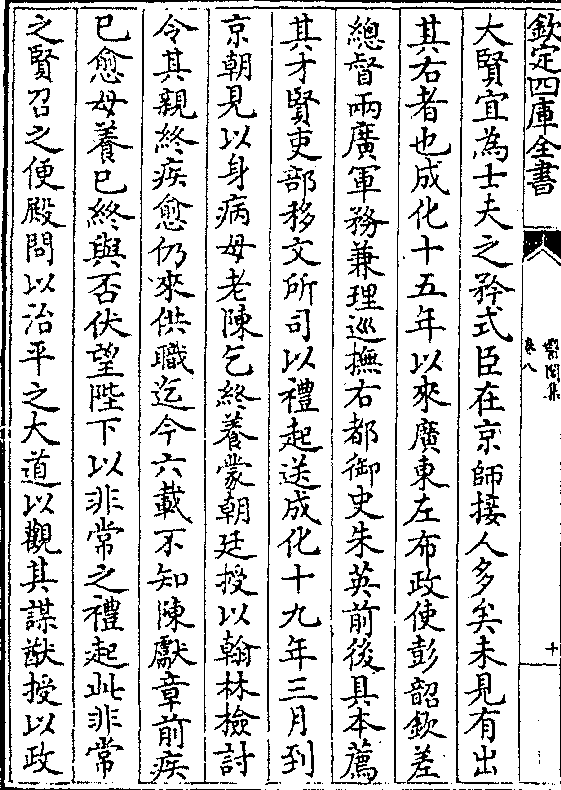 欽定四庫全書
醫閭集
卷八
十
大賢宜為士夫之矜式臣在京師接人多矣未見有出
其右者也成化十五年以來廣東左布政使彭韶欽差
總督兩廣軍務兼理巡撫右都御史朱英前後具本薦
其才賢吏部移文所司以禮起送成化十九年三月到
京朝見以身病母老陳乞終養蒙朝廷授以翰林檢討
令其親終疾愈仍來供職迄今六載不知陳獻章前疾
已愈母養已終與否伏望陛下以非常之禮起此非常
之賢召之便殿問以治平之大道以觀其謀猷授以政